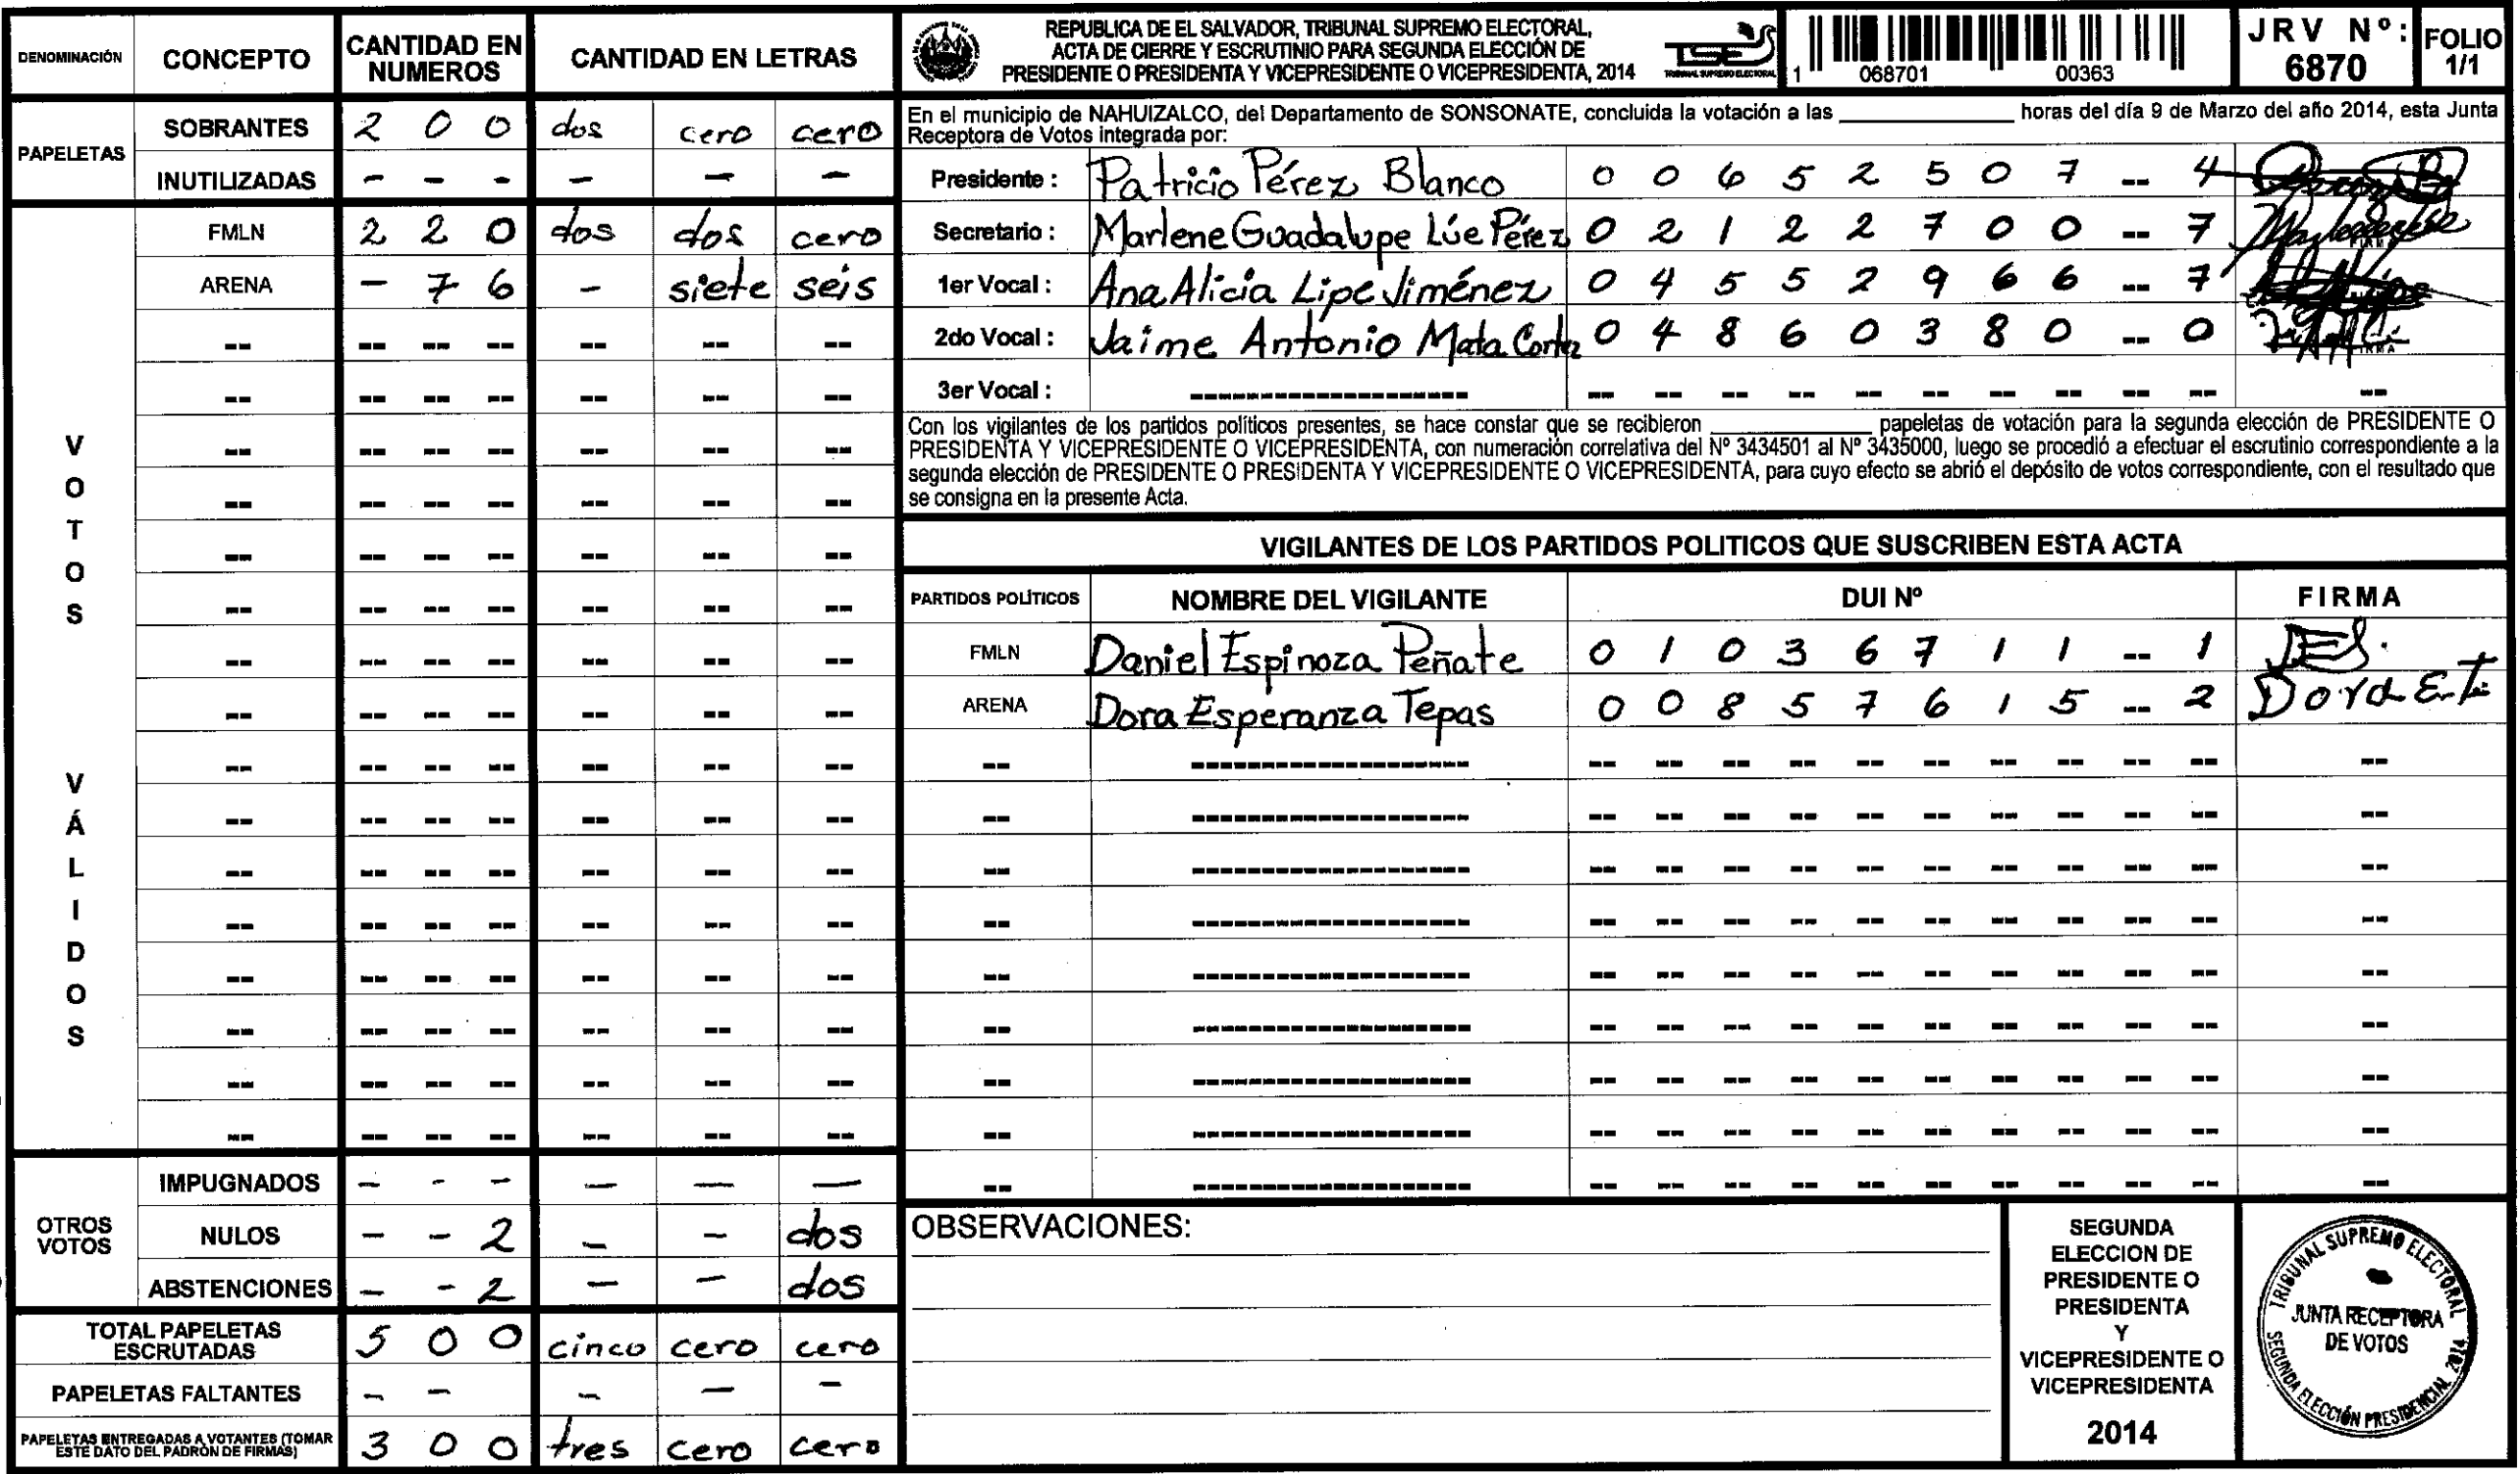 DENOMINACIÓN CONCEPTO CANTIDAD EN NUMEROS CANTIDAD EN LETRAS
PAPELETAS
SOBRANTES 2 0 0 dos cero cero
INUTILIZADAS - - - - - -
VOTOS VÁLIDOS
FMLN 2 2 0 dos dos cero
ARENA - 7 6 - siete seis
OTROS VOTOS
IMPUGNADOS - - - - - -
NULOS - - 2 - - dos
ABSTENCIONES - - 2 - - dos
TOTAL PAPELETAS ESCRUTADAS 5 0 0 cinco cero cero
PAPELETAS FALTANTES - - - - -
PAPELETAS ENTREGADAS A VOTANTES (TOMAR ESTE DATO DEL PADRÓN DE FIRMAS) 3 0 0 tres cero cero
REPUBLICA DE EL SALVADOR, TRIBUNAL SUPREMO ELECTORAL,
ACTA DE CIERRE Y ESCRUTINIO PARA SEGUNDA ELECCIÓN DE
PRESIDENTE O PRESIDENTA Y VICEPRESIDENTE O VICEPRESIDENTA, 2014
TSE
TRIBUNAL SUPREMO ELECTORAL
1 068701 00363
JRV Nº: 6870
FOLIO 1/1
En el municipio de NAHUIZALCO, del Departamento de SONSONATE, concluida la votación a las ____________ horas del día 9 de Marzo del año 2014, esta Junta
Receptora de Votos integrada por:
Presidente : Patricio Pérez Blanco 0 0 6 5 2 5 0 7 -- 4
Secretario : Marlene Guadalupe Lúe Pérez 0 2 1 2 2 7 0 0 -- 7
1er Vocal : Ana Alicia Lipe Jiménez 0 4 5 5 2 9 6 6 -- 7
2do Vocal : Jaime Antonio Mata Cortez 0 4 8 6 0 3 8 0 -- 0
3er Vocal :
Con los vigilantes de los partidos políticos presentes, se hace constar que se recibieron ____________ papeletas de votación para la segunda elección de PRESIDENTE O
PRESIDENTA Y VICEPRESIDENTE O VICEPRESIDENTA, con numeración correlativa del Nº 3434501 al Nº 3435000, luego se procedió a efectuar el escrutinio correspondiente a la
segunda elección de PRESIDENTE O PRESIDENTA Y VICEPRESIDENTE O VICEPRESIDENTA, para cuyo efecto se abrió el depósito de votos correspondiente, con el resultado que
se consigna en la presente Acta.
VIGILANTES DE LOS PARTIDOS POLITICOS QUE SUSCRIBEN ESTA ACTA
PARTIDOS POLÍTICOS NOMBRE DEL VIGILANTE DUI Nº FIRMA
FMLN Daniel Espinoza Peñate 0 1 0 3 6 7 1 1 -- 1
ARENA Dora Esperanza Tepas 0 0 8 5 7 6 1 5 -- 2
OBSERVACIONES:
SEGUNDA
ELECCION DE
PRESIDENTE O
PRESIDENTA
Y
VICEPRESIDENTE O
VICEPRESIDENTA
2014
TRIBUNAL SUPREMO ELECTORAL
JUNTA RECEPTORA
DE VOTOS
SEGUNDA ELECCIÓN PRESIDENCIAL 2014